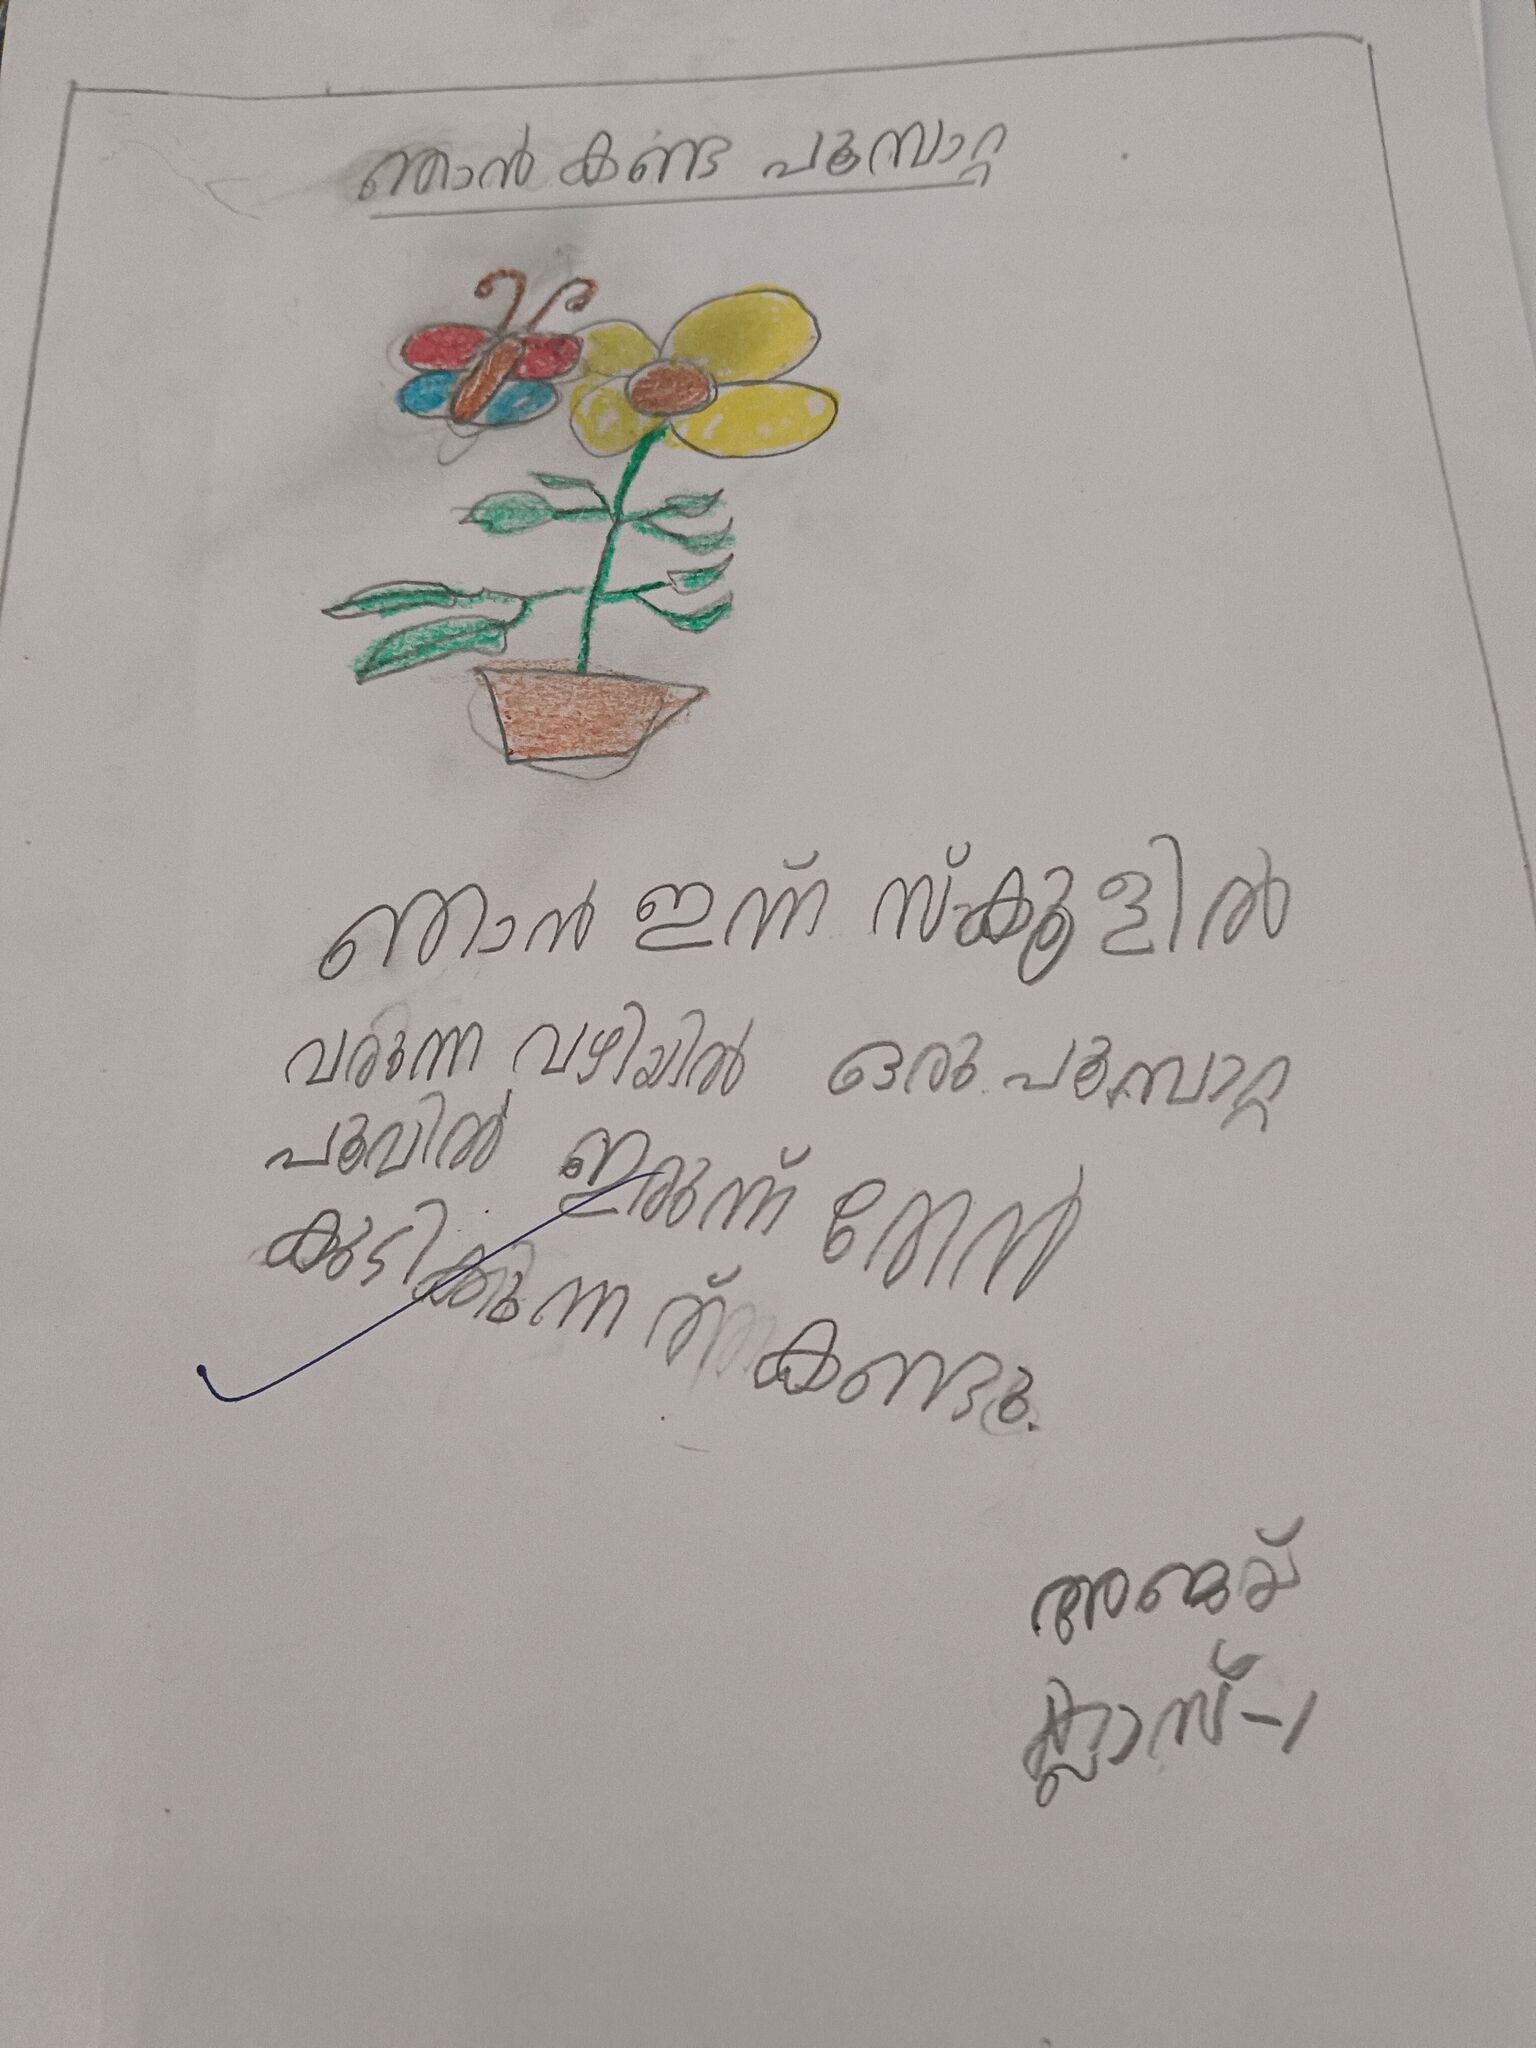 ഞാൻ കണ്ട പൂമ്പാറ്റ
ഞാൻ ഇന്ന് സ്കൂളിൽ
വരുന്ന വഴിയിൽ ഒരു പൂമ്പാറ്റ
പൂവിൽ ഇരുന്ന് തേൻ
കുടിക്കുന്നത് കണ്ടു.
ക്ലാസ്-1